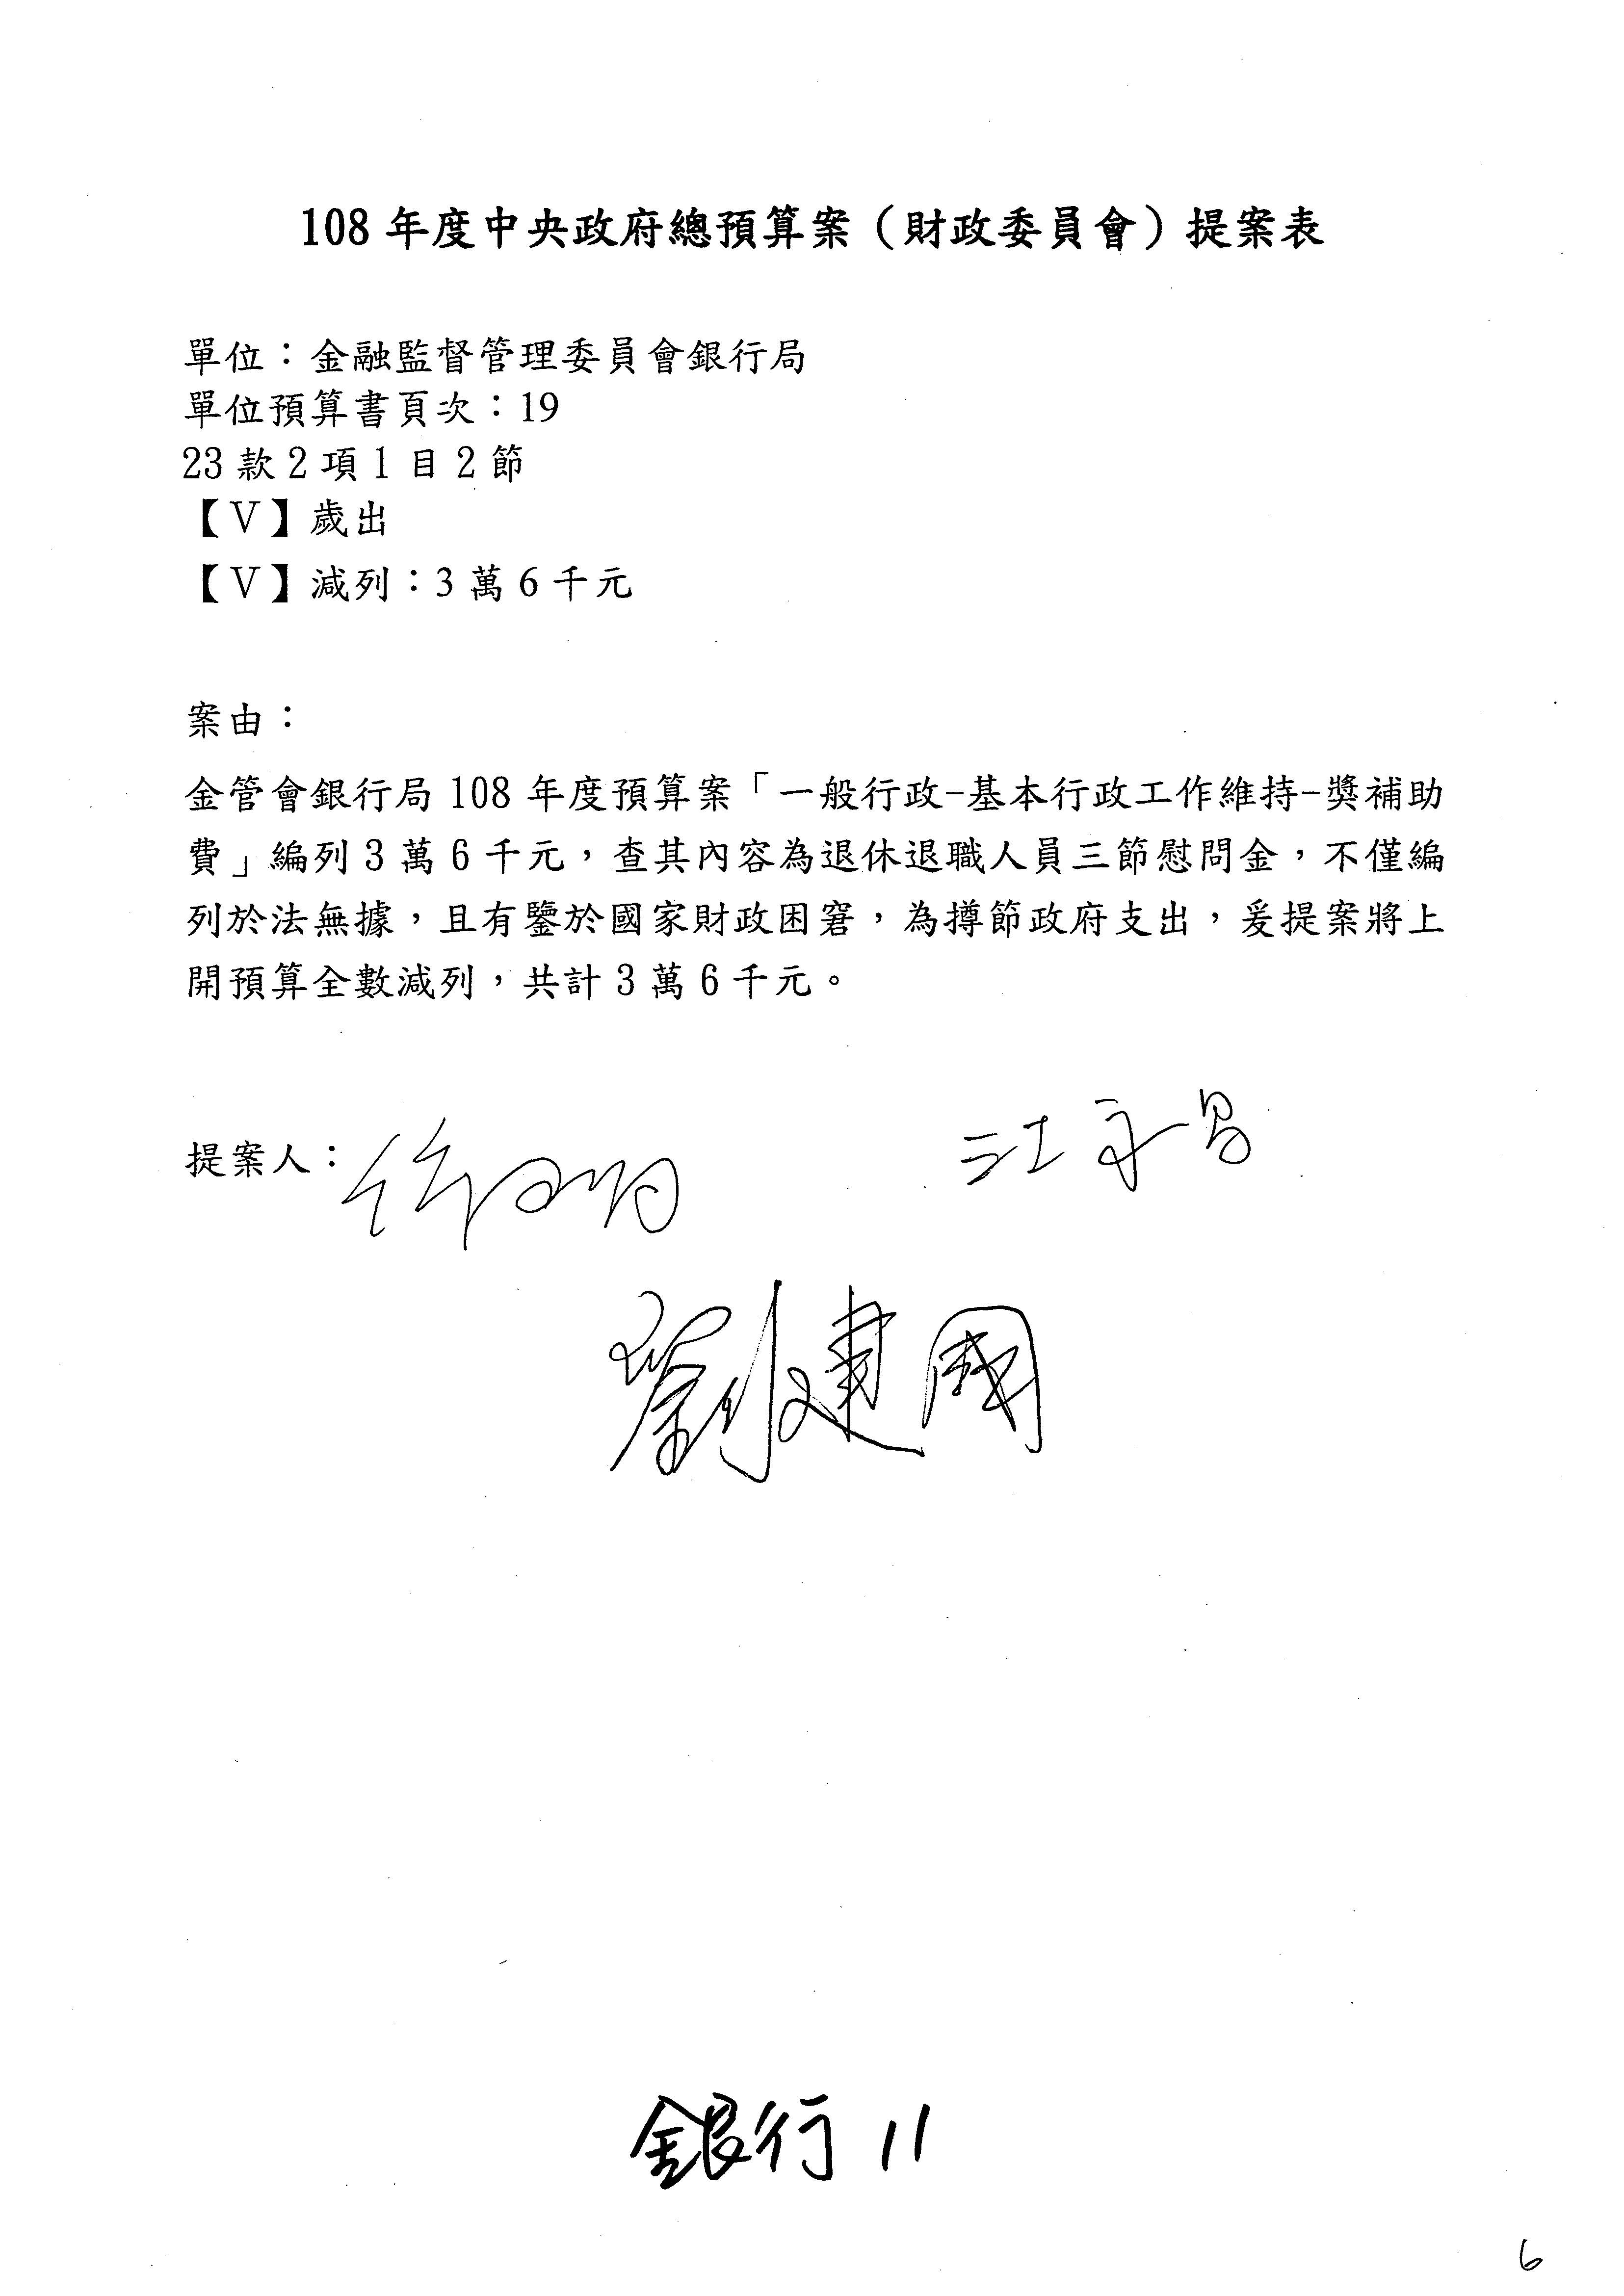 108 年度中央政府總預算案（財政委員會）提案表
單位：金融監督管理委員會銀行局
單位預算書頁次：19
23 款 2 項 1 目 2 節
【V】歲出
【V】減列：3 萬 6 千元
案由：
金管會銀行局 108 年度預算案「一般行政-基本行政工作維持-獎補助
費」編列 3 萬 6 千元，查其內容為退休退職人員三節慰問金，不僅編
列於法無據，且有鑒於國家財政困窘，為撙節政府支出，爰提案將上
開預算全數減列，共計 3 萬 6 千元。
提案人：
江永昌
劉建國
銀行 11
6